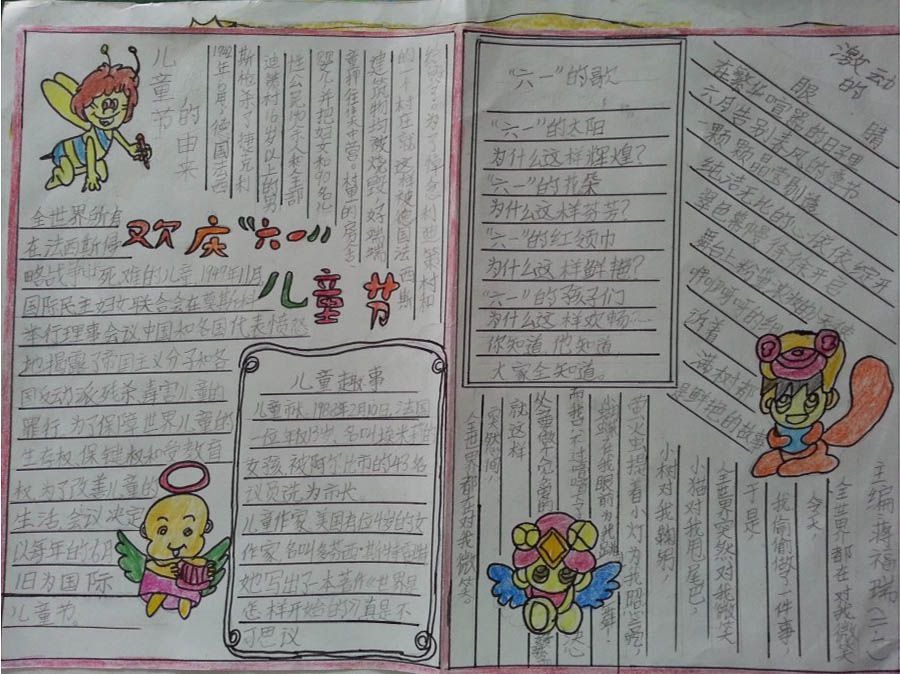 儿童节
的由来
1942年6月,德国法西
斯枪杀了捷克利
迪策村16岁以上的男
性公民140余人和全部
婴儿,并把妇女和90名儿
童押往集中营。村里的房舍、
建筑物均被烧毁,好端端
的一个村庄就这样被德国法西斯
全世界所有
在法西斯侵
略战争中死难的儿童,1949年11月
国际民主妇女联合会在莫斯科
举行理事会议中国和各国代表愤怒
地揭露了帝国主义分子和各
国反动派残杀、毒害儿童的
罪行,为了保障世界儿童的
生存权、保健权和受教育
权,为了改善儿童的
生活,会议决定
以每年的6月
1日为国际
儿童节。
欢庆“六一”
儿童节
儿童趣事
儿童市长,1982年2月10日,法国
一位年仅13岁、名叫
女孩,被阿尔比市的43名
议员选为市长。
儿童作家,美国有位4岁的女
作家,名叫多萝西·斯特
她写出了一本著作《世界是
怎样开始的》真是不
可思议
“六一”的歌
“六一”的太阳
为什么这样辉煌?
“六一”的花朵
为什么这样芬芳?
“六一”的红领巾
为什么这样鲜艳?
“六一”的孩子们
为什么这样欢畅……
你知道,他知道
大家全知道。
激动
的
眼
睛
在繁华喧嚣的日子里
六月告别春风的季节
一颗颗晶莹剔透
纯洁无比的心依依绽开
翌日幕幔徐徐合
舞台上粉
诉着
满树都
是鲜艳的故事
主编蒋福瑞(二.)
全世界都在对我微笑
今天,
我偷偷做了一件事,
于是
全世界突然对我微笑
小猫对我甩尾巴,
小树对我鞠躬,
萤火虫提着小灯为我照亮,
蝴蝶在我眼前为我跳舞!
而我,不过
就这样
突然间,
全世界都在对我微笑。